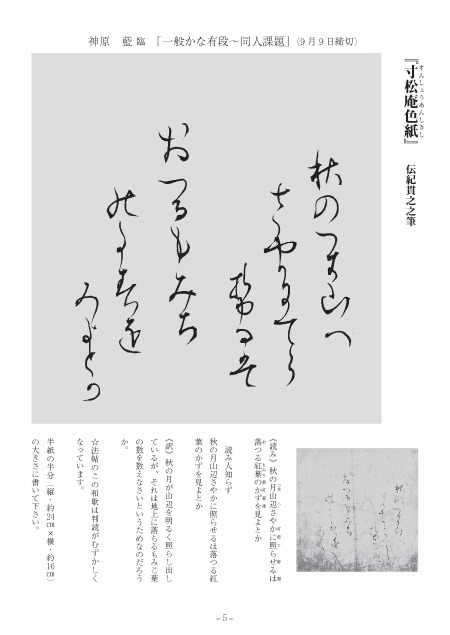 神原　藍 臨　「一般かな有段～同人課題」（9月9日締切）
『寸松庵色紙』　伝紀貫之之筆
すんしょうあんしきし
秋のつき山へ
おつるもみち
《読み》秋の月山辺さやかに照らせるは
落つる紅葉のかずを見よとか
読み人知らず
秋の月山辺さやかに照らせるは落つる紅
葉のかずを見よとか
《訳》秋の月が山辺を明るく照らし出し
ているが、それは地上に落ちるもみじ葉
の数を数えなさいというためなのだろう
か。
☆法帖のこの和歌は判読がむずかしく
なっています。
半紙の半分（縦・約24㎝×横・約16㎝）
の大きさに書いて下さい。
～5～